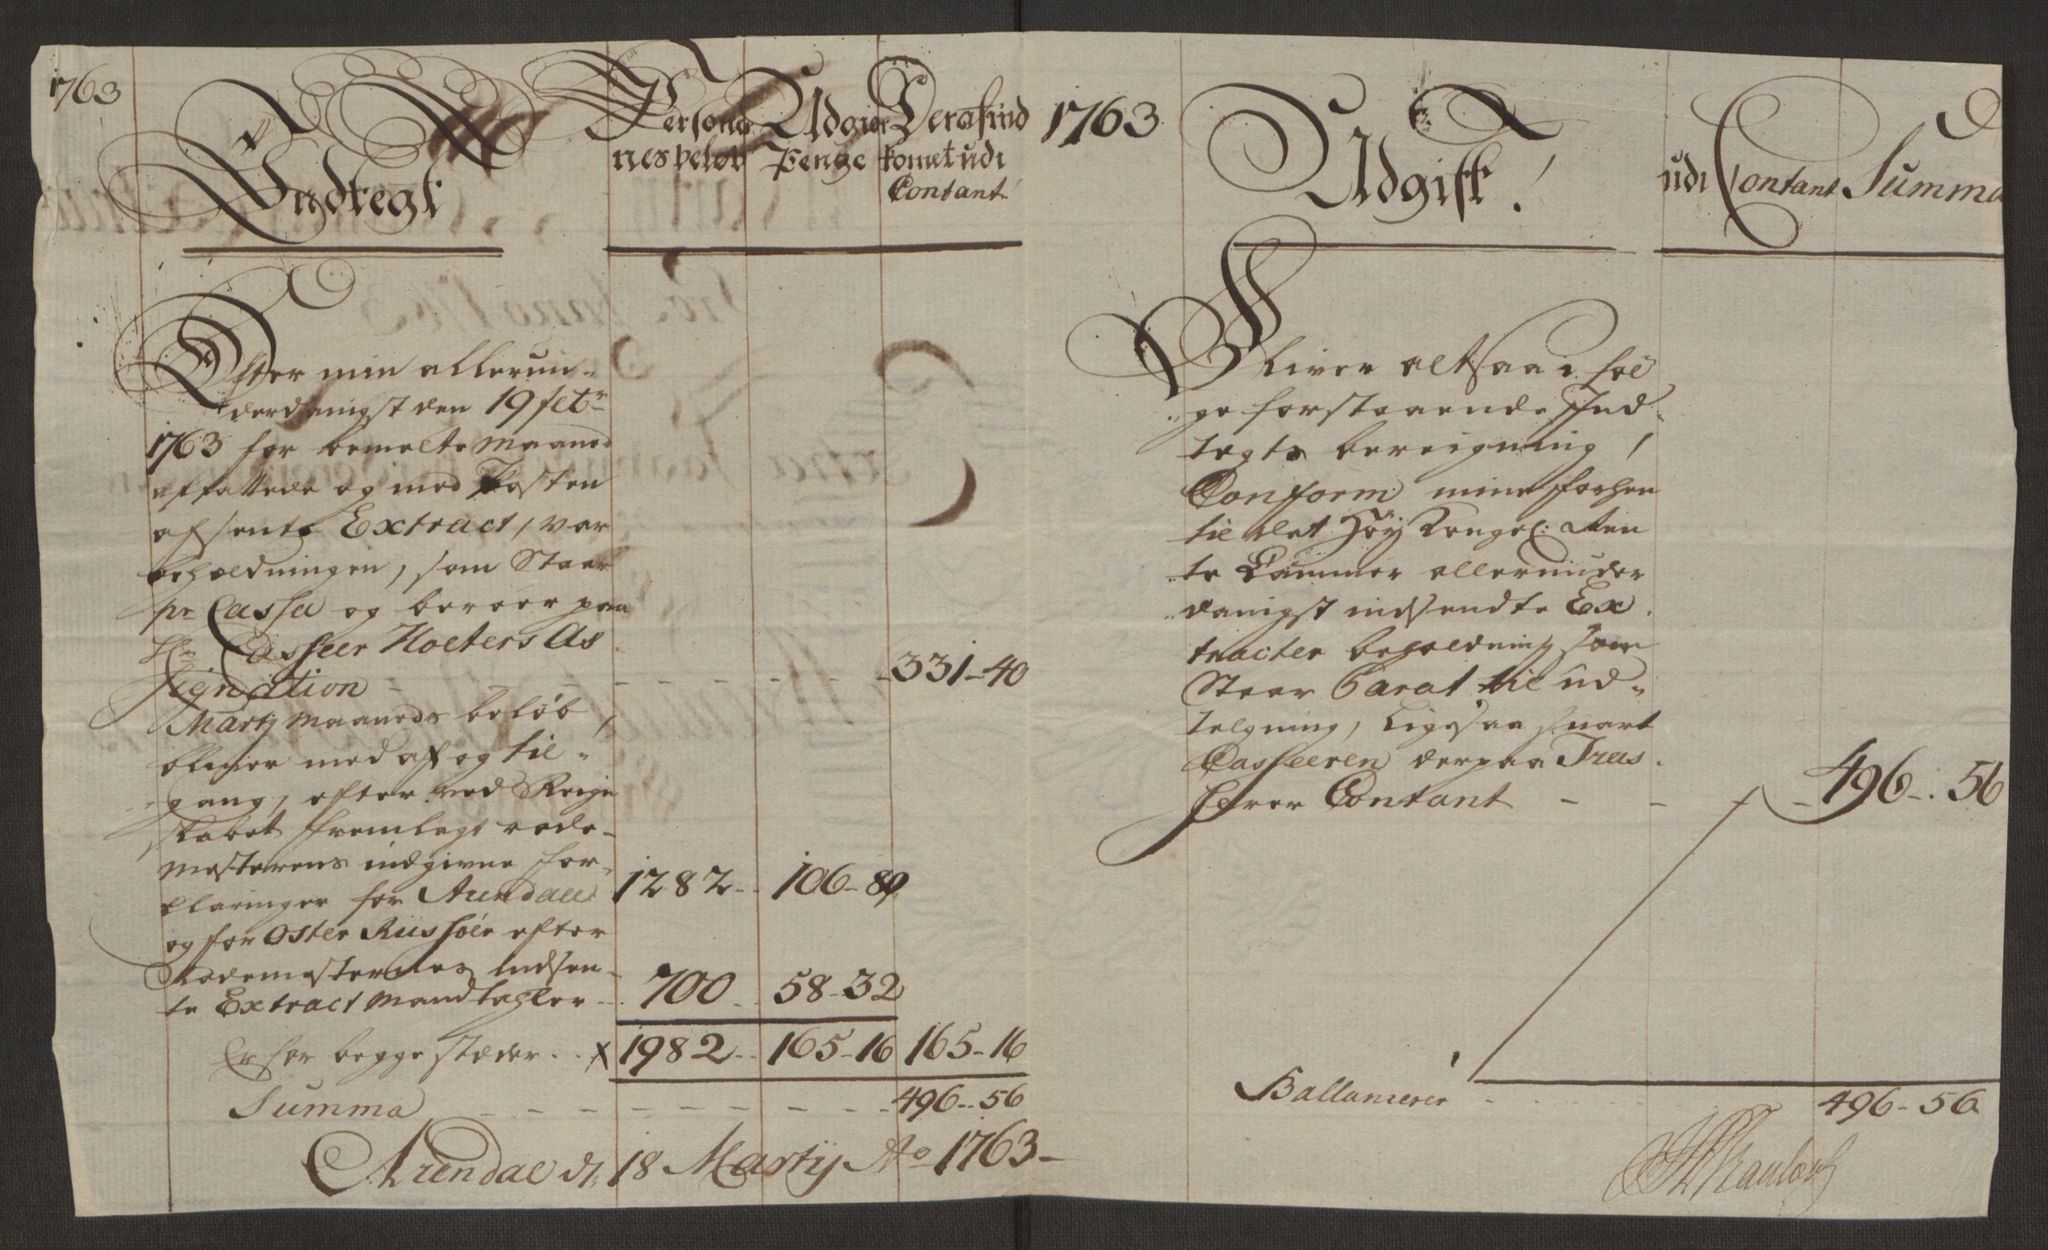 1763
Indtegt
Personer
nes beløb
Udgiør
Penge
Deraf ind
komet udi
Contant
Efter min allerun-
derdanigst den 19 febr
1763 for bemelte Maaned
affattede og med Posten
afsente Extract, var
beholdningen, som Staar
pr Cassa og beroer paa
Hr Casseer Hoelters As
signation - - - - - - - 331-40
Martj Maaneds beløb,
bliver med af og til-
gang, efter ved Reign
skabet fremlagt rode-
mesterens indgivne for-
klaringer for Arendall 1282- 106-80
og for Øster Riisøer efter
Rodemesternes indsen-
te Extract Mandtagler - 700 - 58-32
Er for begge stæder - x 1982 - 165-16 165-16
Summa - - - - - - - - 496-56
Arendal d. 18 Martij Ao 1763-
1763
Udgift!
udi Contant
Summa
Bliver altsaa i føl
ge forstaaende Ind-
tegts bereigning,
Conform mine forhen
til det Høy Kongel: Ren
te Cammer allerunder
danigst indsendte Ex
tracter beholdning som
Staar Parat til ud-
telgning, ligesaa snart
Casseeren derpaa Tras
serer Contant - - - 496-56
Ballancerer - - - 496-56